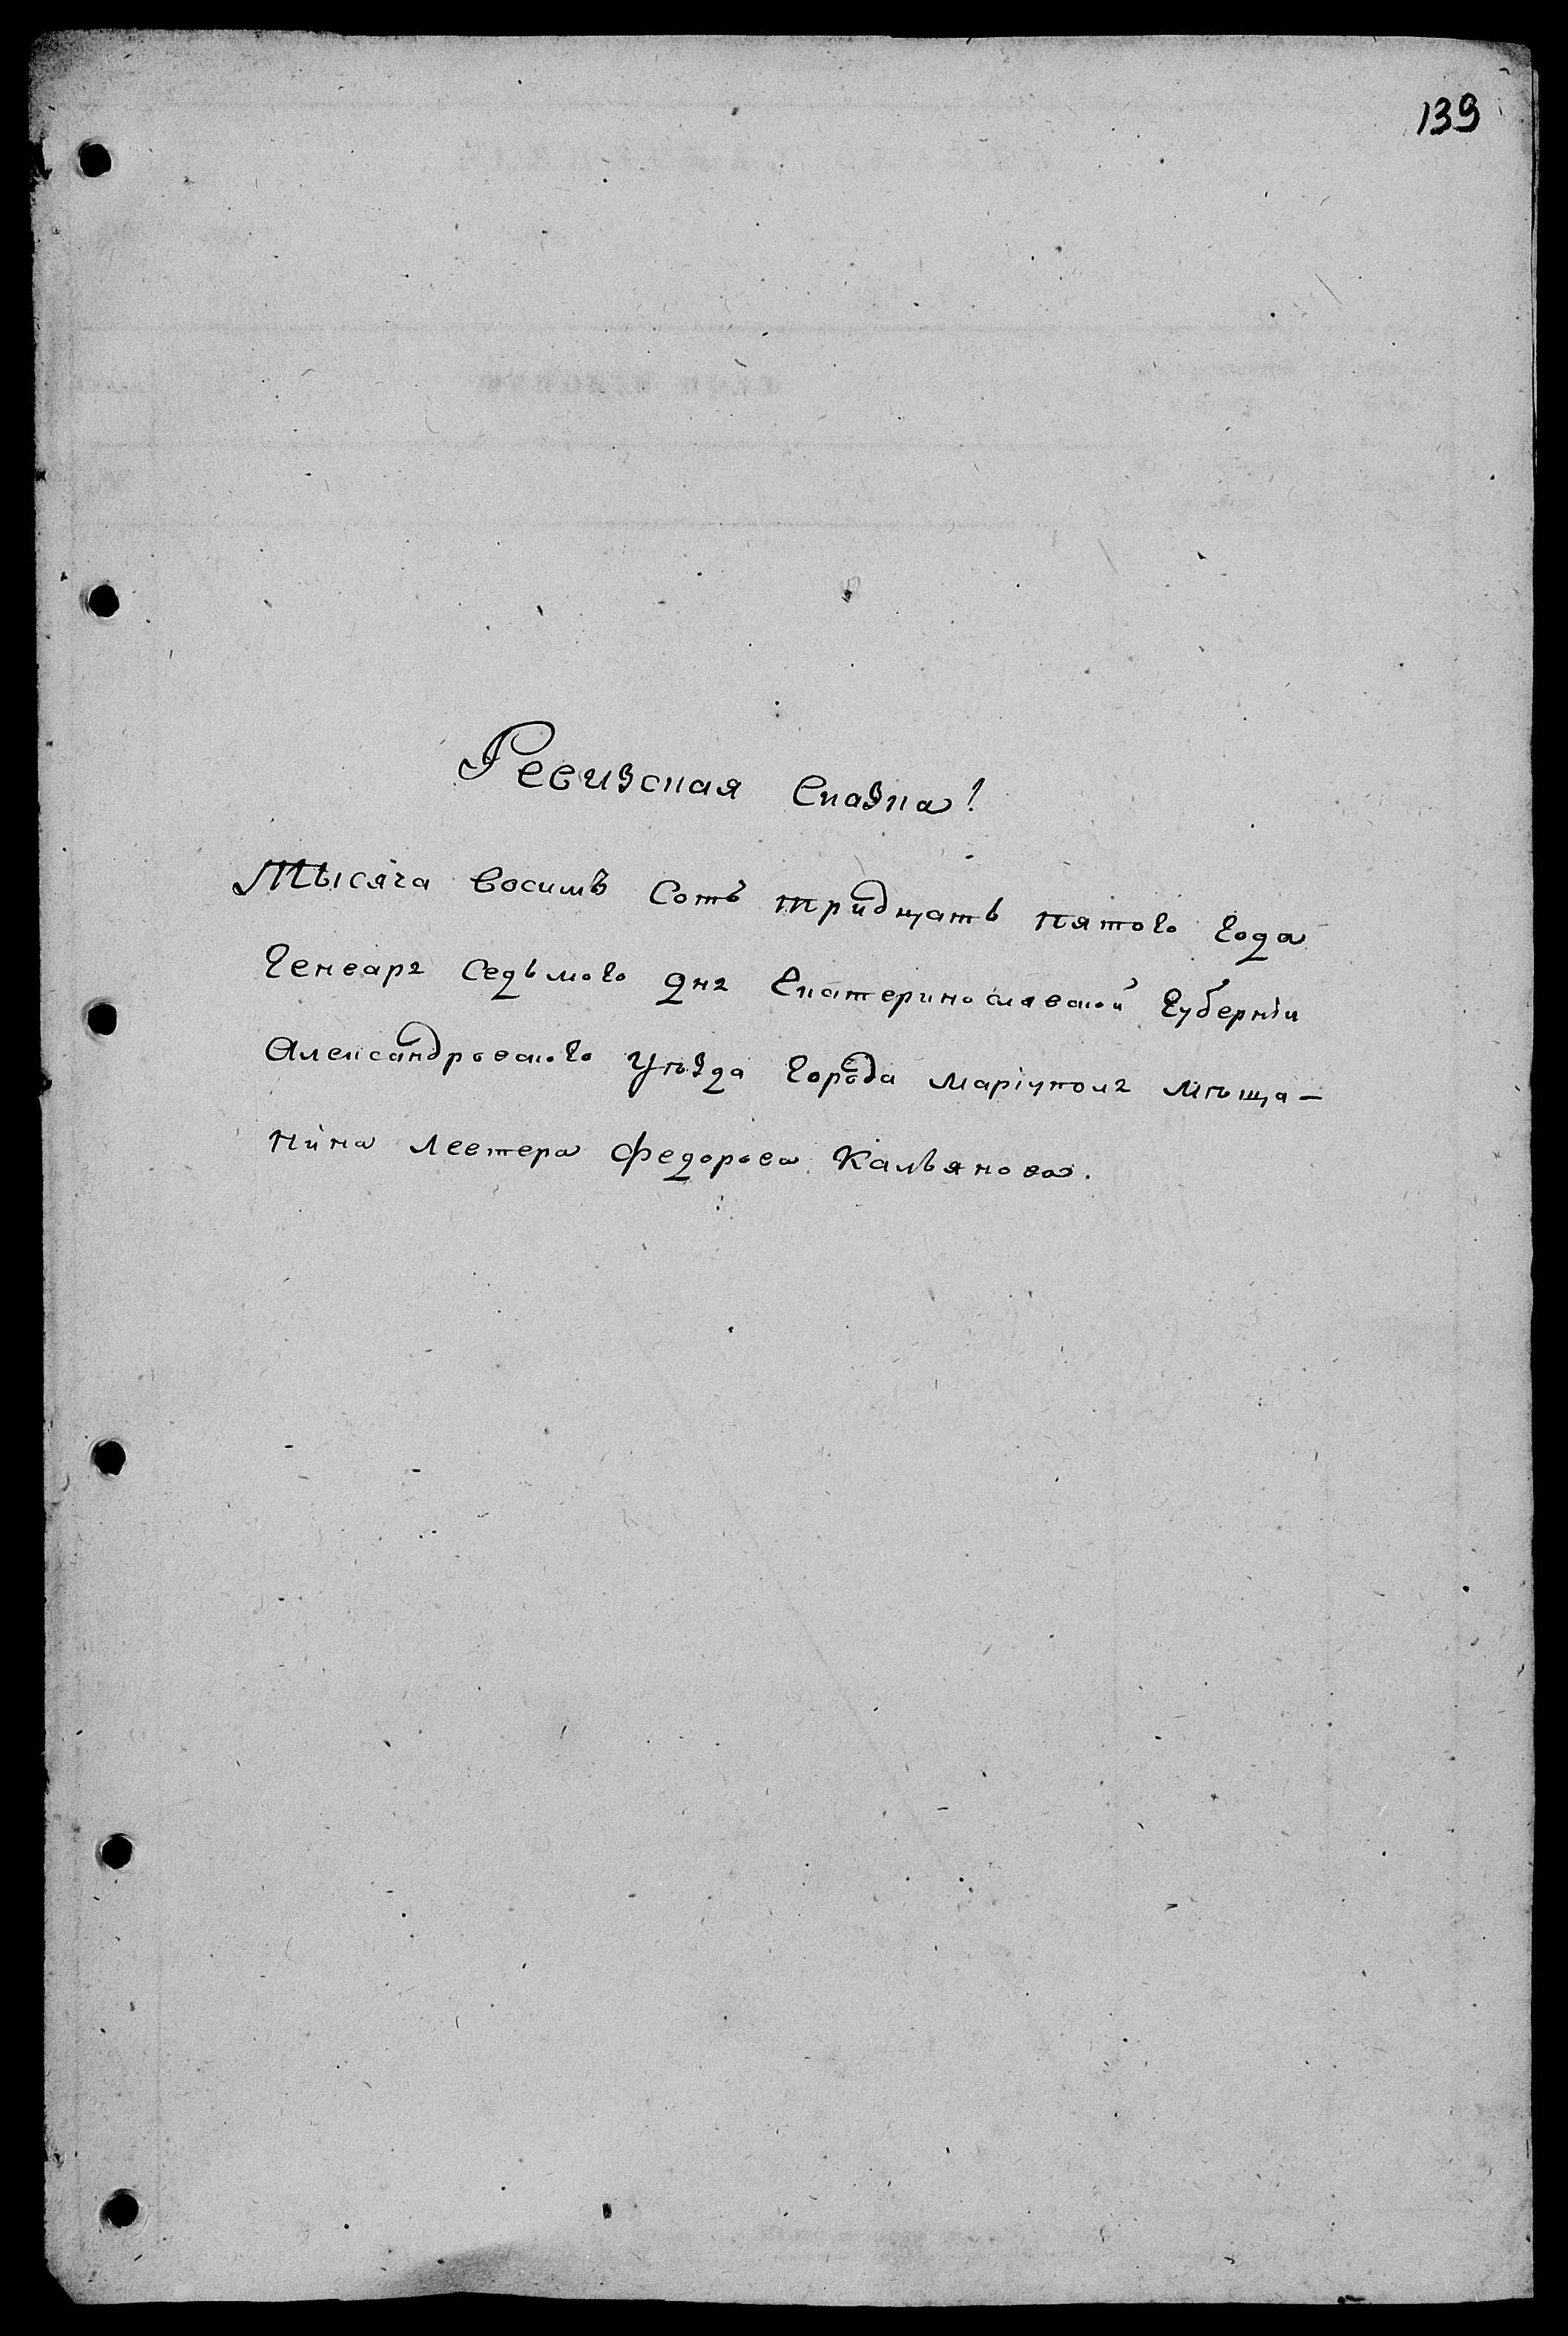 139
Ревизская Сказка!
Тысяча восимъ Сотъ тридцать пятого Года
Генваря Седьмого дня Екатеринославской Губернiи
Александровского Уѣзда Города Марiуполя мѣща-
нина Федорова Кальянова.